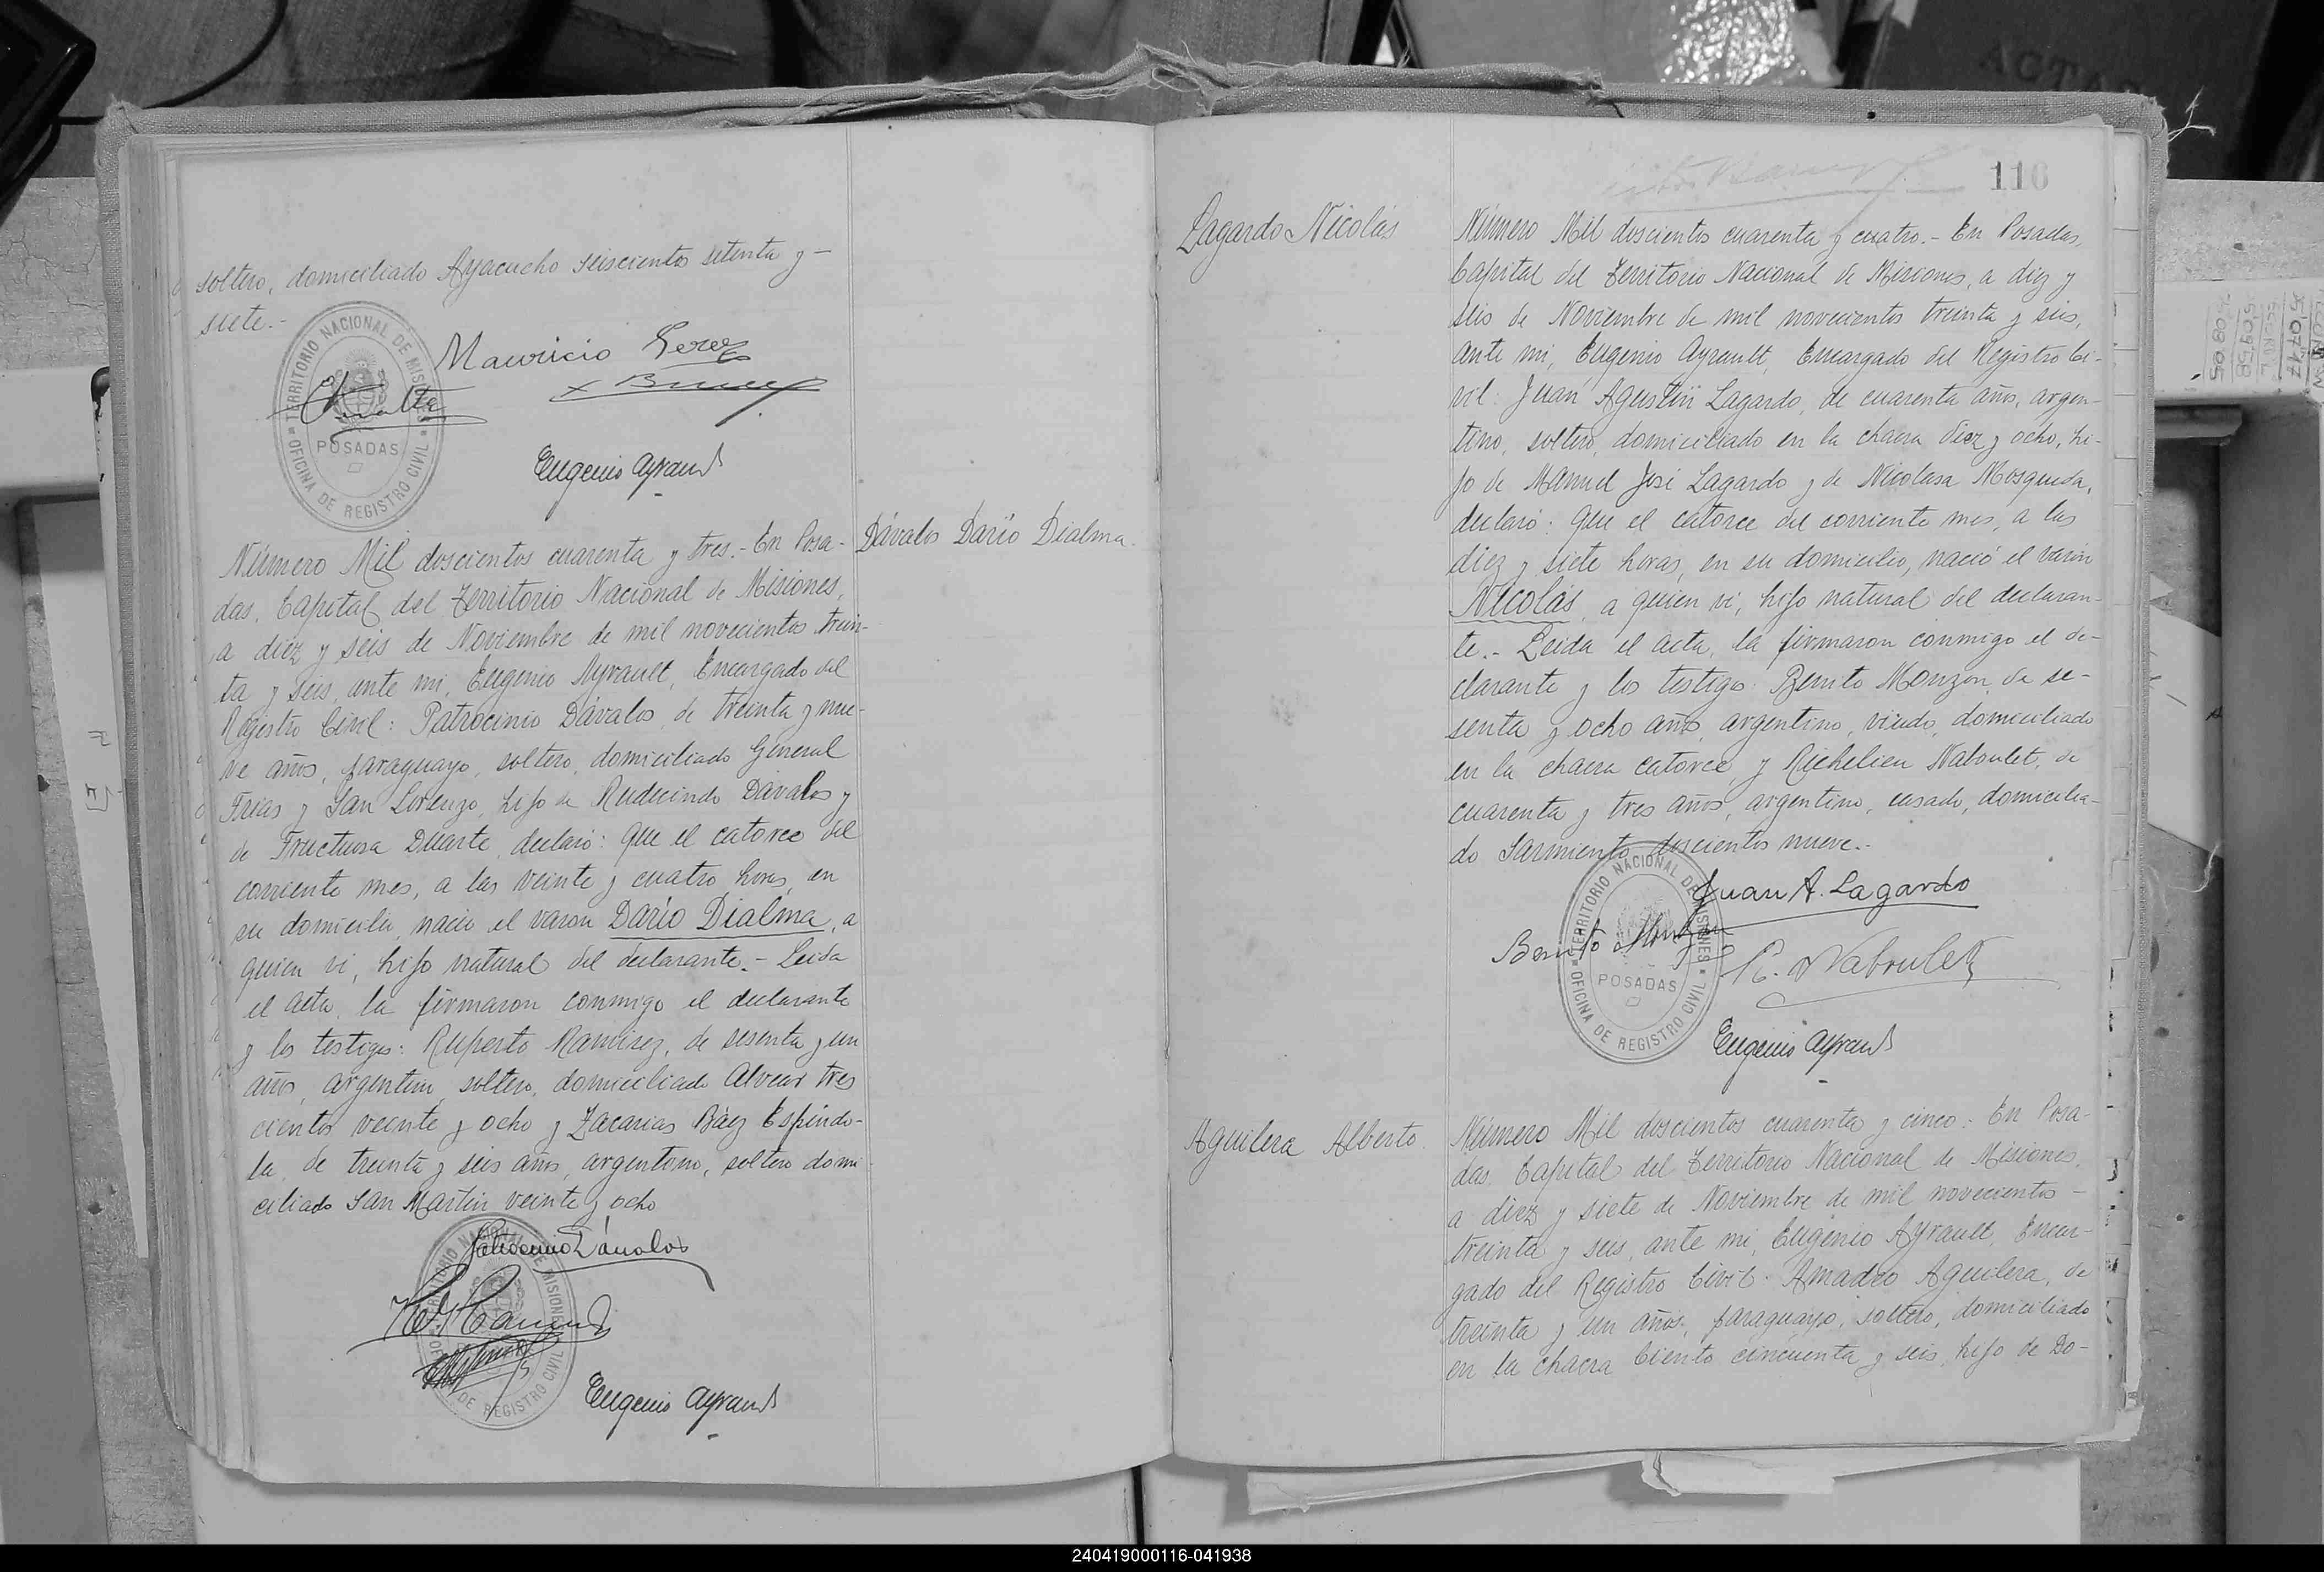 soltero, domiciliado Ayacucho seiscientos setenta y -
siete.-
Mauricio Perez
Eugenio Ayrault
TERRITORIO NACIONAL DE MISIONES
POSADAS
OFICINA DE REGISTRO CIVIL
Dávalos Darío Dialma.
Número Mil doscientos cuarenta y tres.- En Posa-
das, Capital del Territorio Nacional de Misiones,
a diez y seis de Noviembre de mil novecientos trein-
ta y seis, ante mi, Eugenio Ayrault, Encargado del
Registro Civil: Patrocinio Dávalos, de treinta y nue-
ve años, paraguayo, soltero, domiciliado General
Frias y San Lorenzo, hijo de Rudecindo Dávalos y
de Fructuosa Duarte, declaró: Que el catorce del
corriente mes, a las veinte y cuatro horas, en
su domicilio, nació el varon Darío Dialma, a
quien vi, hijo natural del declarante.- Leida
el acta, la firmaron conmigo el declarante
y los testigos: Ruperto Ramirez, de sesenta y un
años, argentino, soltero, domiciliado Alvear tres
cientos veinte y ocho y Zacarias Báez Espíndo-
la, de treinta y seis años, argentino, soltero domi-
ciliado San Martin veinte y ocho
Patrocinio Dávalos
Eugenio Ayrault
TERRITORIO NACIONAL DE MISIONES
OFICINA DE REGISTRO CIVIL
110
Lagardo Nicolás
Número Mil doscientos cuarenta y cuatro.- En Posadas,
Capital del Territorio Nacional de Misiones, a diez y
seis de Noviembre de mil novecientos treinta y seis,
ante mi, Eugenio Ayrault, Encargado del Registro Ci-
vil: Juan Agustín Lagardo, de cuarenta años, argen-
tino, soltero, domiciliado en la chacra diez y ocho, hi-
jo de Manuel José Lagardo y de Nicolasa Mosqueda,
declaró: Que el catorce del corriente mes, a las
diez y siete horas, en su domicilio, nació el varón
Nicolás, a quien vi, hijo natural del declaran-
te.- Leida el acta, la firmaron conmigo el de-
clarante y los testigos: Benito Monzon, de se-
senta y ocho años, argentino, viudo, domiciliado
en la chacra catorce y Richelieu Naboulet, de
cuarenta y tres años, argentino, casado, domicilia-
do Sarmiento doscientos nueve.-
Juan A. Lagardo
Benito Monzon
R. Naboulet
Eugenio Ayrault
TERRITORIO NACIONAL DE MISIONES
POSADAS
OFICINA DE REGISTRO CIVIL
Aguilera Alberto.
Número Mil doscientos cuarenta y cinco: En Posa-
das, Capital del Territorio Nacional de Misiones,
a diez y siete de Noviembre de mil novecientos -
treinta y seis, ante mi, Eugenio Ayrault, Encar-
gado del Registro Civil: Amadeo Aguilera, de
treinta y un años, paraguayo, soltero, domiciliado
en la chacra Ciento cincuenta y seis, hijo de Do-
240419000116-041938